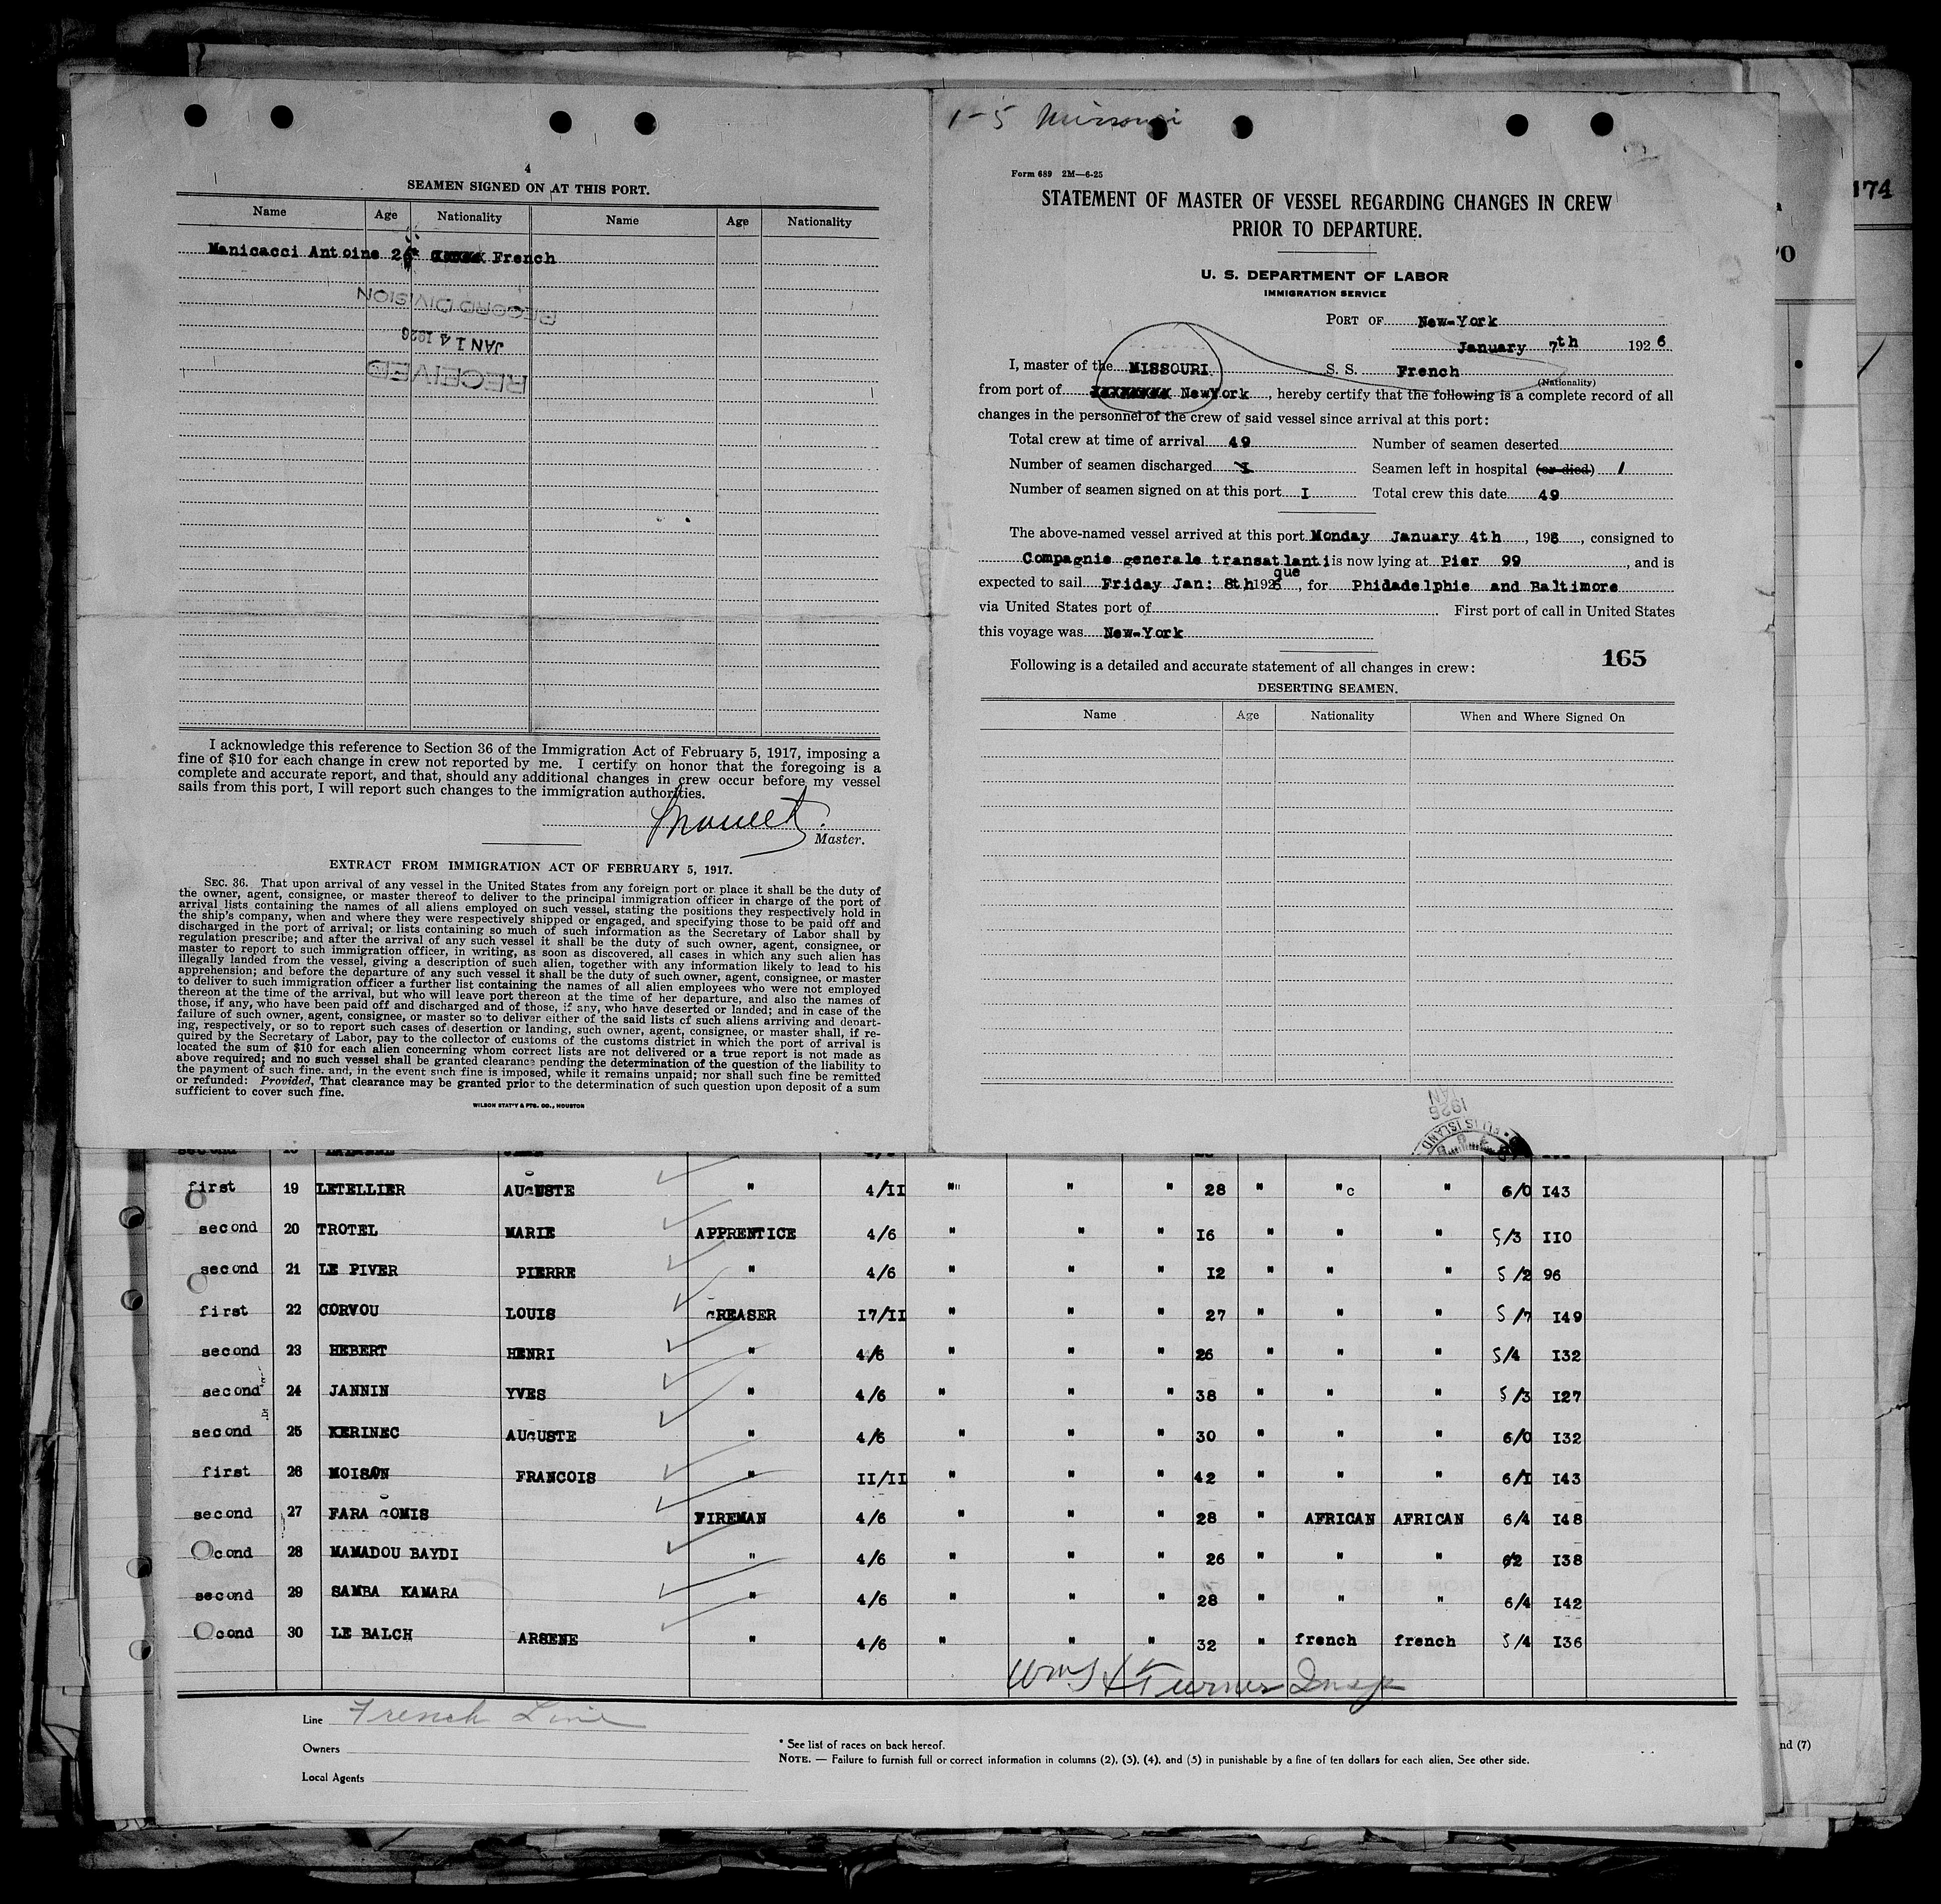 4
SEAMEN SIGNED ON AT THIS PORT.
Name Age Nationality Name Age Nationality
Manicacci Antoine French
RECORD DIVISION
JAN 14 1926
RECEIVED
I acknowledge this reference to Section 36 of the Immigration Act of February 5, 1917, imposing a
fine of $10 for each change in crew not reported by me. I certify on honor that the foregoing is a
complete and accurate report, and that, should any additional changes in crew occur before my vessel
sails from this port, I will report such changes to the immigration authorities.
Master.
EXTRACT FROM IMMIGRATION ACT OF FEBRUARY 5, 1917.
SEC. 36. That upon arrival of any vessel in the United States from any foreign port or place it shall be the duty of
the owner, agent, consignee, or master thereof to deliver to the principal immigration officer in charge of the port of
arrival lists containing the names of all aliens employed on such vessel, stating the positions they respectively hold in
the ship's company, when and where they were respectively shipped or engaged, and specifying those to be paid off and
discharged in the port of arrival; or lists containing so much of such information as the Secretary of Labor shall by
regulation prescribe; and after the arrival of any such vessel it shall be the duty of such owner, agent, consignee, or
master to report to such immigration officer, in writing, as soon as discovered, all cases in which any such alien has
illegally landed from the vessel, giving a description of such alien, together with any information likely to lead to his
apprehension; and before the departure of any such vessel it shall be the duty of such owner, agent, consignee, or master
to deliver to such immigration officer a further list containing the names of all alien employees who were not employed
thereon at the time of the arrival, but who will leave port thereon at the time of her departure, and also the names of
those, if any, who have been paid off and discharged and of those, if any, who have deserted or landed; and in case of the
failure of such owner, agent, consignee, or master so to deliver either of the said lists of such aliens arriving and depart-
ing, respectively, or so to report such cases of desertion or landing, such owner, agent, consignee, or master shall, if re-
quired by the Secretary of Labor, pay to the collector of customs of the customs district in which the port of arrival is
located the sum of $10 for each alien concerning whom correct lists are not delivered or a true report is not made as
above required; and no such vessel shall be granted clearance pending the determination of the question of the liability to
the payment of such fine. and, in the event such fine is imposed, while it remains unpaid; nor shall such fine be remitted
or refunded: Provided, That clearance may be granted prior to the determination of such question upon deposit of a sum
sufficient to cover such fine.
WILSON STAT'Y & PTG. CO., HOUSTON
1-5 Missouri
Form 689 2M—6-25
STATEMENT OF MASTER OF VESSEL REGARDING CHANGES IN CREW
PRIOR TO DEPARTURE.
U. S. DEPARTMENT OF LABOR
IMMIGRATION SERVICE
PORT OF New-York
January 7th 1926
I, master of the MISSOURI S. S. French
(Nationality)
from port of NewYork, hereby certify that the following is a complete record of all
changes in the personnel of the crew of said vessel since arrival at this port:
Total crew at time of arrival 49 Number of seamen deserted
Number of seamen discharged I Seamen left in hospital (or died) 1
Number of seamen signed on at this port I Total crew this date 49
The above-named vessel arrived at this port Monday January 4th, 1926, consigned to
Compagnie generale transatlanti is now lying at Pier 99, and is
que
expected to sail Friday Jan: 8th 1926, for Phidadelphie and Baltimore
via United States port of First port of call in United States
this voyage was New-York
165
Following is a detailed and accurate statement of all changes in crew:
DESERTING SEAMEN.
Name Age Nationality When and Where Signed On
ELLIS ISLAND
JAN
1926
174
70
first 19 LETELLIER AUGUSTE " 4/II " " " 28 " " c " 6/0 I43
second 20 TROTEL MARIE APPRENTICE 4/6 " " " I6 " " " 5/3 IIO
second 21 LE PIVER PIERRE " 4/6 " " " I2 " " " 5/2 96
first 22 CORVOU LOUIS GREASER I7/II " " " 27 " " " 5/7 I49
second 23 HEBERT HENRI " 4/6 " " " 26 " " " 5/4 I32
second 24 JANNIN YVES " 4/6 " " " 38 " " " 5/3 I27
second 25 KERINEC AUGUSTE " 4/6 " " " 30 " " " 6/0 I32
first 26 MOISON FRANCOIS " II/II " " " 42 " " " 6/I I43
second 27 FARA GOMIS FIREMAN 4/6 " " " 28 " AFRICAN AFRICAN 6/4 I48
cond 28 MAMADOU BAYDI " 4/6 " " " 26 " " " 6/2 I38
second 29 SAMBA KAMARA " 4/6 " " " 28 " " " 6/4 I42
cond 30 LE BALCH ARSENE " 4/6 " " " 32 " french french 5/4 I36
Wm J Turner Insp
Line French Line
Owners
Local Agents
* See list of races on back hereof.
NOTE. — Failure to furnish full or correct information in columns (2), (3), (4), and (5) in punishable by a fine of ten dollars for each alien, See other side.
nd (7)